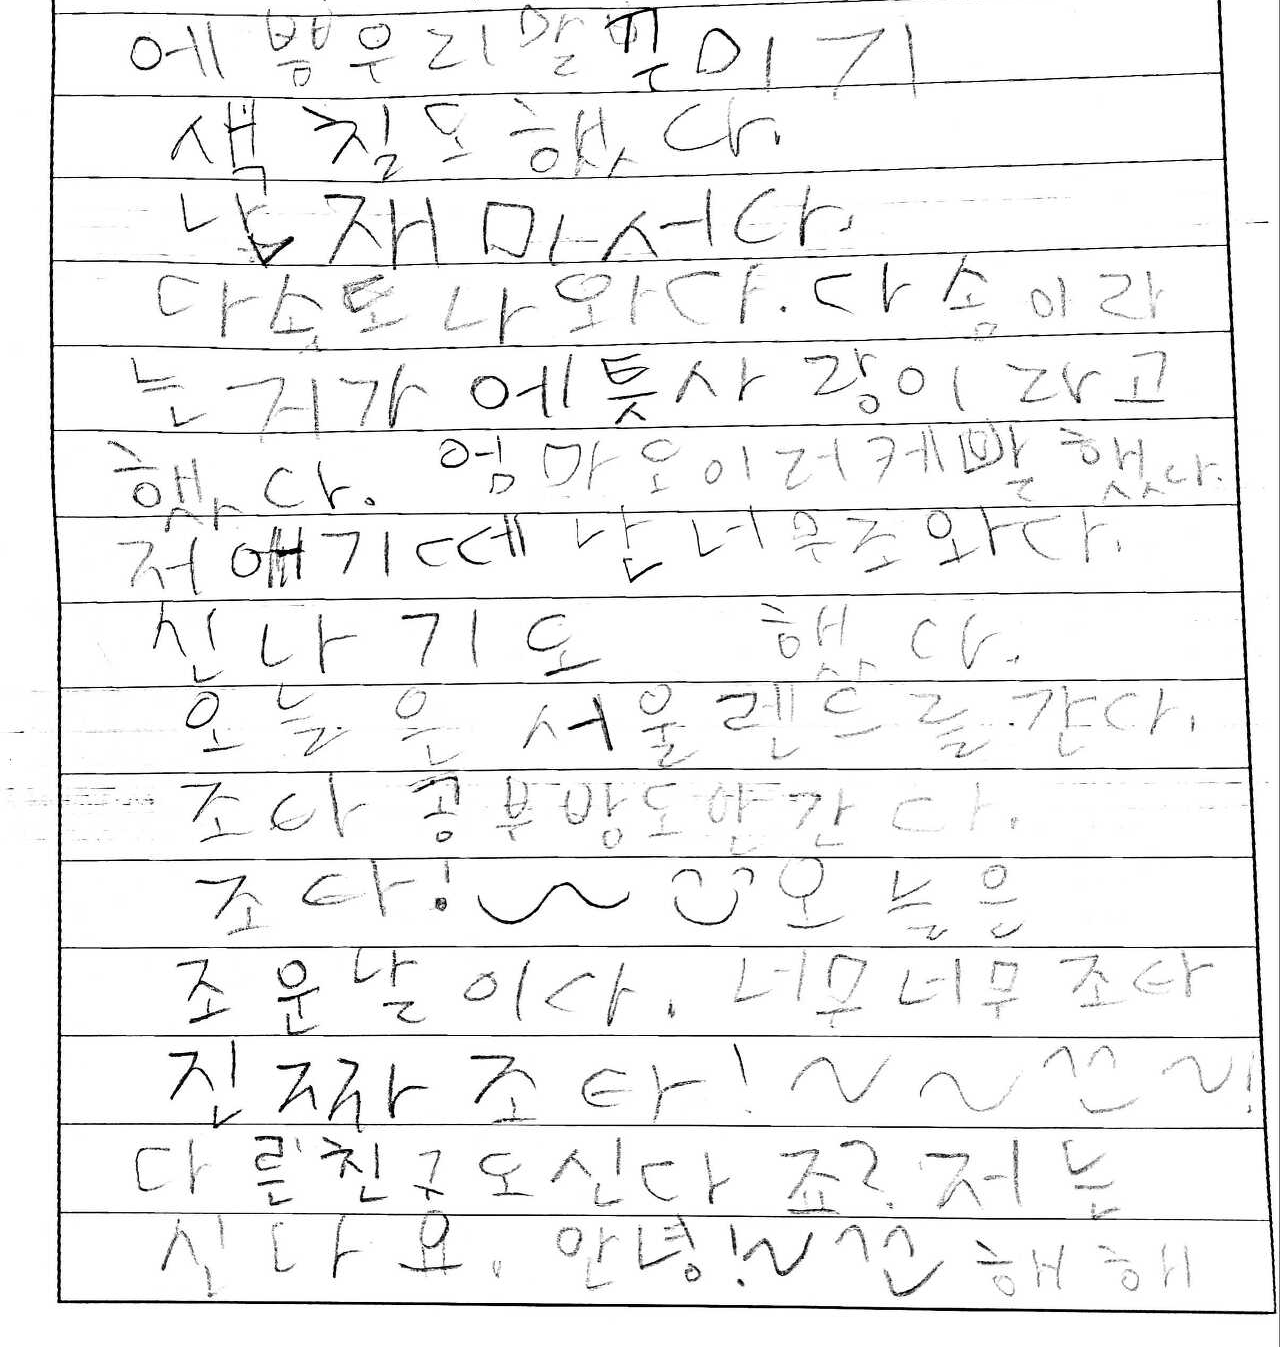 에쁜우리말꾸미기
색칠도했다.
난재미서다.
다솜도나와다. 다솜이라
는 지가 에틋사랑이라고
했다. 엄마도이러케말했다.
저얘기때 난너무조와다.
신나기도 했다.
오늘은 서울렌드를간다.
조아 공부방도안간다.
조타!~ 오늘은
조운날이다. 너무너무조타
진짜 조타!~~^^~!
다른친구도신나죠? 저는
신나요. 안녕!~^^ 해해